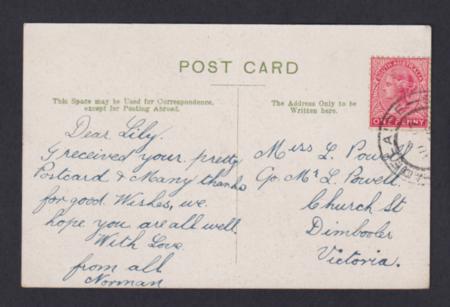 POST CARD
This Space may be Used for Correspondence,
except for Posting Abroad.
The Address Only to be
Written here.
SOUTH AUSTRALIA
ONE PENNY
Dear Lily.
I received your pretty
Postcard & Many thanks
for good Wishes, we
hope you are all well
With Love
from all
Norman
Miss L.
C/o Mr L. Powell.
Church St
Dimboola
Victoria.